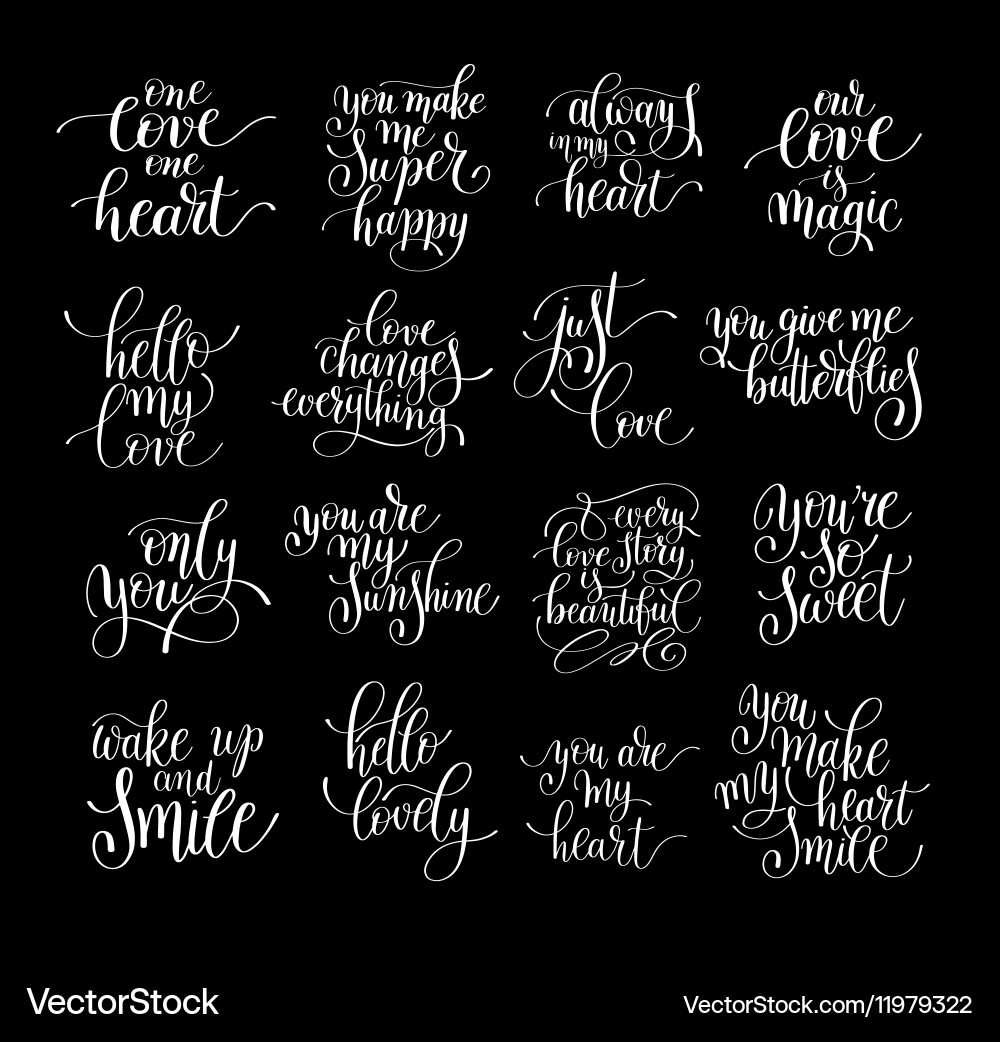 one
love
one
heart
you make
me
Super
happy
always
in my
heart
our
love
is
magic
hello
my
love
love
changes
everything
just
love
you give me
butterflies
only
you
you are
my
Sunshine
every
love story
is
beautiful
You're
so
Sweet
wake up
and
Smile
hello
lovely
you are
my
heart
you
make
my heart
Smile
VectorStock
VectorStock.com/11979322